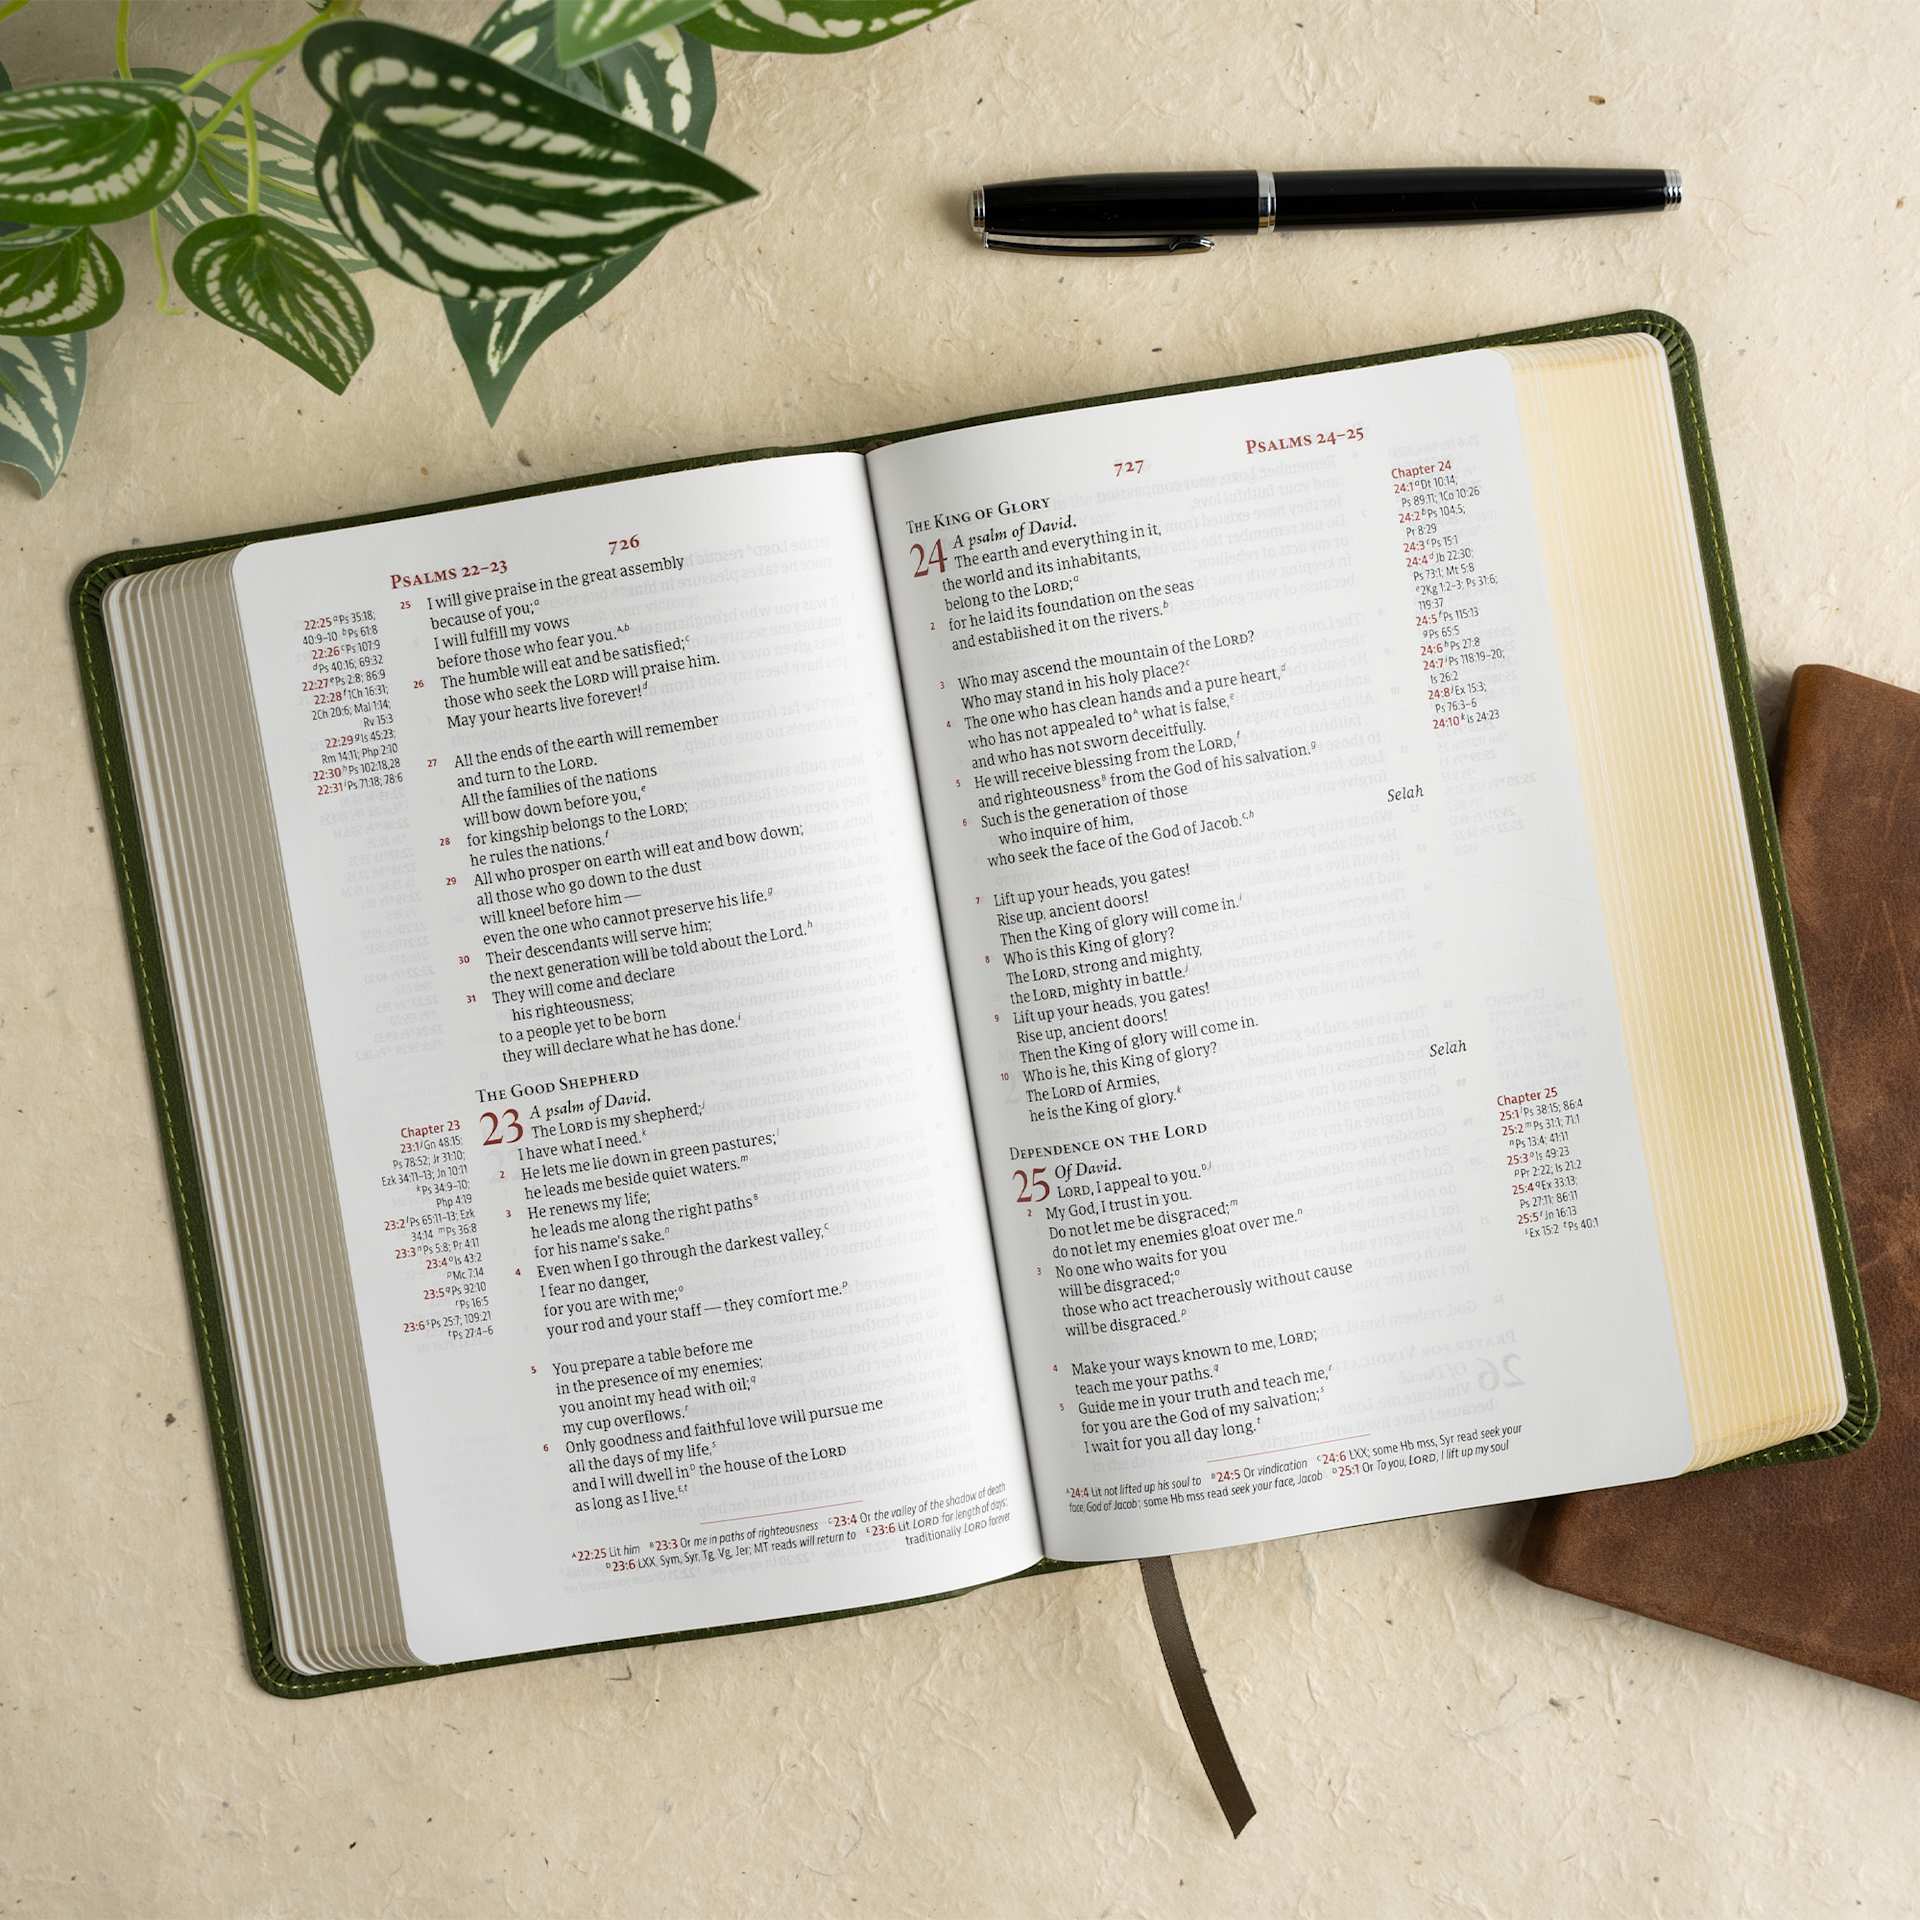 PSALMS 22–23
726
22:25 ᵃPs 35:18;
40:9–10 ᵇPs 61:8
22:26 ᶜPs 107:9
ᵈPs 40:16; 69:32
22:27 ᵉPs 2:8; 86:9
22:28 ᶠ1Ch 16:31;
2Ch 20:6; Mal 1:14;
Rv 15:3
22:29 ᵍIs 45:23;
Rm 14:11; Php 2:10
22:30 ʰPs 102:18,28
22:31 ⁱPs 71:18; 78:6
25 I will give praise in the great assembly
because of you;ᵃ
I will fulfill my vows
before those who fear you.ᴬ,ᵇ
26 The humble will eat and be satisfied;ᶜ
those who seek the LORD will praise him.
May your hearts live forever!ᵈ
27 All the ends of the earth will remember
and turn to the LORD.
All the families of the nations
will bow down before you,ᵉ
28 for kingship belongs to the LORD;
he rules the nations.ᶠ
29 All who prosper on earth will eat and bow down;
all those who go down to the dust
will kneel before him —
even the one who cannot preserve his life.ᵍ
30 Their descendants will serve him;
the next generation will be told about the Lord.ʰ
31 They will come and declare
his righteousness;
to a people yet to be born
they will declare what he has done.ⁱ
THE GOOD SHEPHERD
23 A psalm of David.
The LORD is my shepherd;ʲ
I have what I need.ᵏ
2 He lets me lie down in green pastures;ˡ
he leads me beside quiet waters.ᵐ
3 He renews my life;
he leads me along the right pathsᴮ
for his name's sake.ⁿ
4 Even when I go through the darkest valley,ᶜ
I fear no danger,
for you are with me;ᵒ
your rod and your staff — they comfort me.ᵖ
5 You prepare a table before me
in the presence of my enemies;
you anoint my head with oil;ᑫ
my cup overflows.ʳ
6 Only goodness and faithful love will pursue me
all the days of my life,ˢ
and I will dwell inᴰ the house of the LORD
as long as I live.ᴱ,ᵗ
Chapter 23
23:1 ʲGn 48:15;
Ps 78:52; Jr 31:10;
Ezk 34:11–13; Jn 10:11
ᵏPs 34:9–10;
Php 4:19
23:2 ˡPs 65:11–13; Ezk
34:14 ᵐPs 36:8
23:3 ⁿPs 5:8; Pr 4:11
23:4 ᵒIs 43:2
ᵖMc 7:14
23:5 ᑫPs 92:10
ʳPs 16:5
23:6 ˢPs 25:7; 109:21
ᵗPs 27:4–6
ᴬ22:25 Lit him ᴮ23:3 Or me in paths of righteousness ᶜ23:4 Or the valley of the shadow of death
ᴰ23:6 LXX, Sym, Syr, Tg, Vg, Jer; MT reads will return to ᴱ23:6 Lit LORD for length of days;
traditionally LORD forever
727
PSALMS 24–25
THE KING OF GLORY
24 A psalm of David.
The earth and everything in it,
the world and its inhabitants,
belong to the LORD;ᵃ
2 for he laid its foundation on the seas
and established it on the rivers.ᵇ
3 Who may ascend the mountain of the LORD?
Who may stand in his holy place?ᶜ
4 The one who has clean hands and a pure heart,ᵈ
who has not appealed toᴬ what is false,ᵉ
and who has not sworn deceitfully.
5 He will receive blessing from the LORD,ᶠ
and righteousnessᴮ from the God of his salvation.ᵍ
6 Such is the generation of those
who inquire of him,
who seek the face of the God of Jacob.ᶜ,ʰ
Selah
7 Lift up your heads, you gates!
Rise up, ancient doors!
Then the King of glory will come in.ⁱ
8 Who is this King of glory?
The LORD, strong and mighty,
the LORD, mighty in battle.ʲ
9 Lift up your heads, you gates!
Rise up, ancient doors!
Then the King of glory will come in.
10 Who is he, this King of glory?
The LORD of Armies,
he is the King of glory.ᵏ
Selah
DEPENDENCE ON THE LORD
25 Of David.
LORD, I appeal to you.ᴰ,ˡ
2 My God, I trust in you.
Do not let me be disgraced;ᵐ
do not let my enemies gloat over me.ⁿ
3 No one who waits for you
will be disgraced;ᵒ
those who act treacherously without cause
will be disgraced.ᵖ
4 Make your ways known to me, LORD;
teach me your paths.ᑫ
5 Guide me in your truth and teach me,ʳ
for you are the God of my salvation;ˢ
I wait for you all day long.ᵗ
Chapter 24
24:1 ᵃDt 10:14;
Ps 89:11; 1Co 10:26
24:2 ᵇPs 104:5;
Pr 8:29
24:3 ᶜPs 15:1
24:4 ᵈJb 22:30;
Ps 73:1; Mt 5:8
ᵉ2Kg 1:2–3; Ps 31:6;
119:37
24:5 ᶠPs 115:13
ᵍPs 65:5
24:6 ʰPs 27:8
24:7 ⁱPs 118:19–20;
Is 26:2
24:8 ʲEx 15:3;
Ps 76:3–6
24:10 ᵏIs 24:23
Chapter 25
25:1 ˡPs 38:15; 86:4
25:2 ᵐPs 31:1; 71:1
ⁿPs 13:4; 41:11
25:3 ᵒIs 49:23
ᵖPr 2:22; Is 21:2
25:4 ᑫEx 33:13;
Ps 27:11; 86:11
25:5 ʳJn 16:13
ˢEx 15:2 ᵗPs 40:1
ᴬ24:4 Lit not lifted up his soul to ᴮ24:5 Or vindication ᶜ24:6 LXX; some Hb mss, Syr read seek your
face, God of Jacob; some Hb mss read seek your face, Jacob ᴰ25:1 Or To you, LORD, I lift up my soul